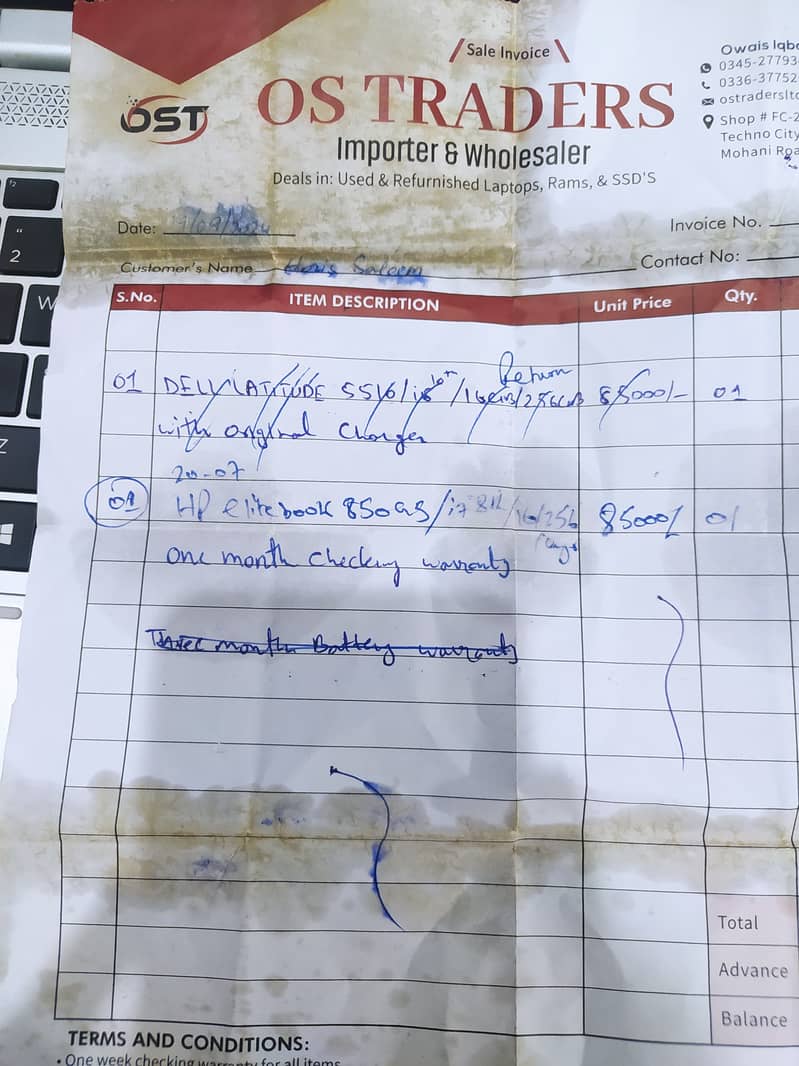 / Sale Invoice \
OST
OS TRADERS
Importer & Wholesaler
Deals in: Used & Refurnished Laptops, Rams, & SSD'S
Owais Iqba
0345-27793
0336-37752
ostradersltd
Shop # FC-2
Techno City
Mohani Roa
Date: /09/2024
Invoice No.
Customer's Name Saleem
Contact No:
S.No. ITEM DESCRIPTION Unit Price Qty.
Return
01 DELL LATITUDE 5510/i5 10th/16GB/256GB 85000/- 01
with original Charger
20-07
01 HP elitebook 850 G5/i7 8th/16/256 85000/ 01
one month checking warranty
Three month Battery warranty
Total
Advance
Balance
TERMS AND CONDITIONS:
• One week checking warranty for all items